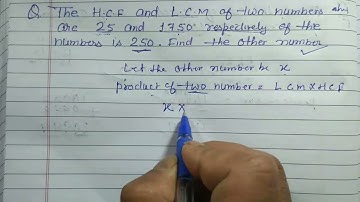 Q. The H.C.F and L.C.M of two numbers
are 25 and 1750 respectively of the
numbers is 250. Find the other number
Let the other number be x
product of two number = LCM X HCF
x x